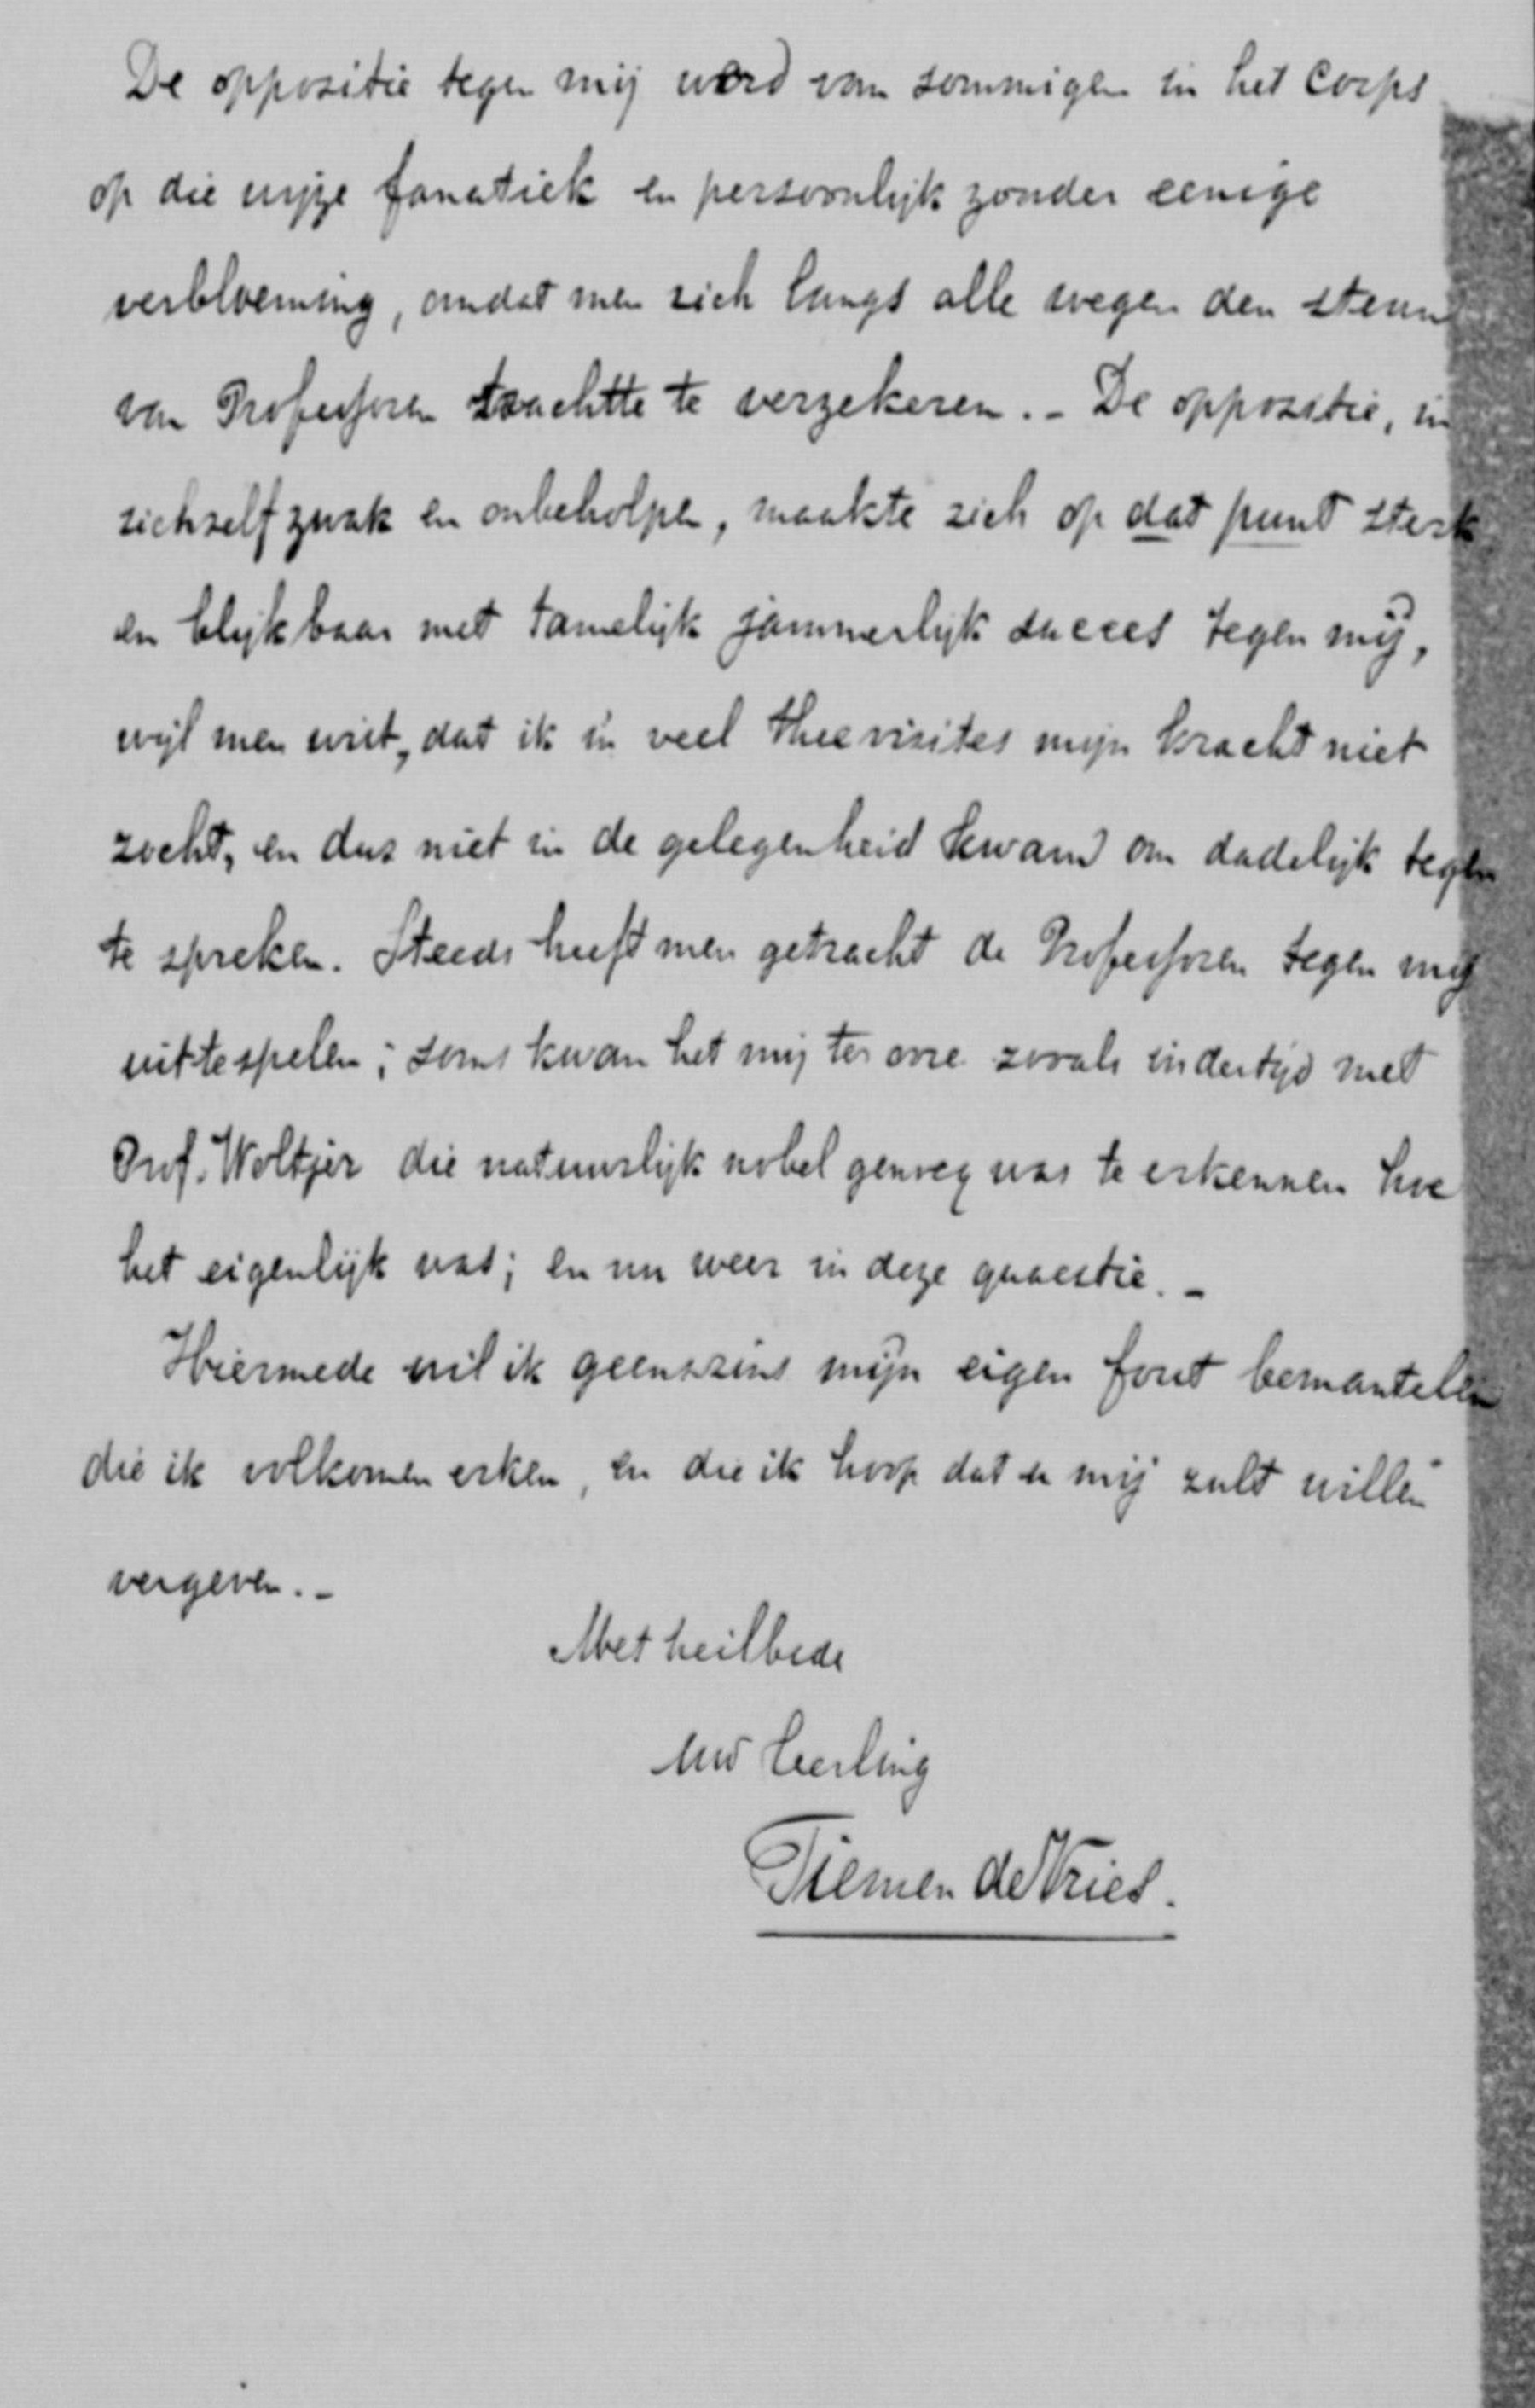 De oppositie tegen mij werd van sommigen in het Corps
op die wijze fanatiek en persoonlijk zonder eenige
verbloeming, omdat men zich langs alle wegen den steun
van Professoren trachtte te verzekeren. - De oppositie, in
zichzelf zwak en onbeholpen, maakte zich op dat punt sterk
en blijkbaar met tamelijk jammerlijk succes tegen mij,
wijl men wist, dat ik in veel theevisites mijn kracht niet
zocht, en dus niet in de gelegenheid kwam om dadelijk tegen
te spreken. Steeds heeft men getracht de Professoren tegen mij
uittespelen; soms kwam het mij ter oore zooals indertijd met
Prof. Woltjer die natuurlijk nobel genoeg was te erkennen hoe
het eigenlijk was; en nu weer in deze quaestie. -
Hiermede wil ik geenszins mijn eigen fout bemantelen
die ik volkomen erken, en die ik hoop dat u mij zult willen
vergeven. -
Met heilbede
Uw leerling
Tiemen de Vries.